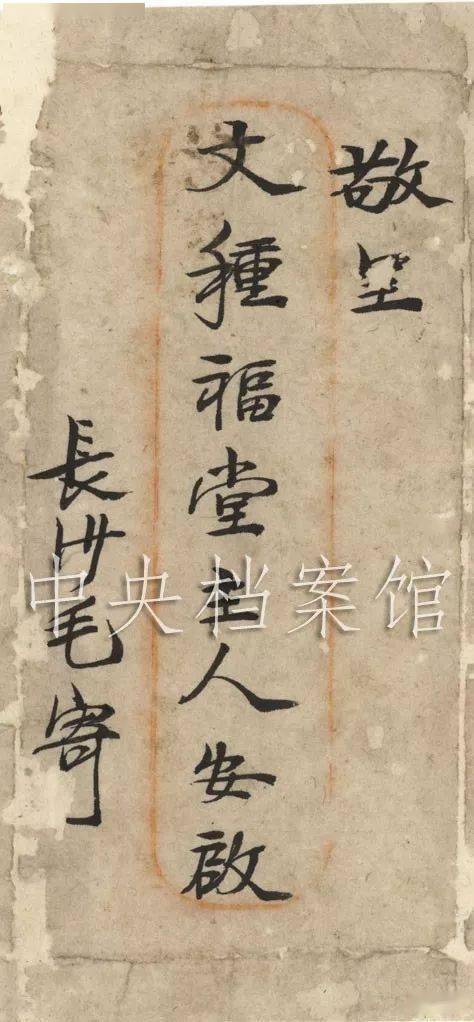 敬呈
文種福堂主人安啟
長沙毛寄
中央档案馆